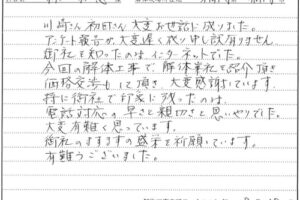 川崎さん和田さん大変お世話に成りました。
アンケート報告が大変遅く成り申し訳有りません。
御社を知ったのはインターネットでした。
今回の解体工事で、解体業社を紹介頂き
価格交渉もして頂き、大変感謝しています。
特に御社で印象に残ったのは、
電話対応の早さと親切さと思いやりでした。
大変有難く思っています。
御社のますますの盛栄を祈願しています。
有難うございました。